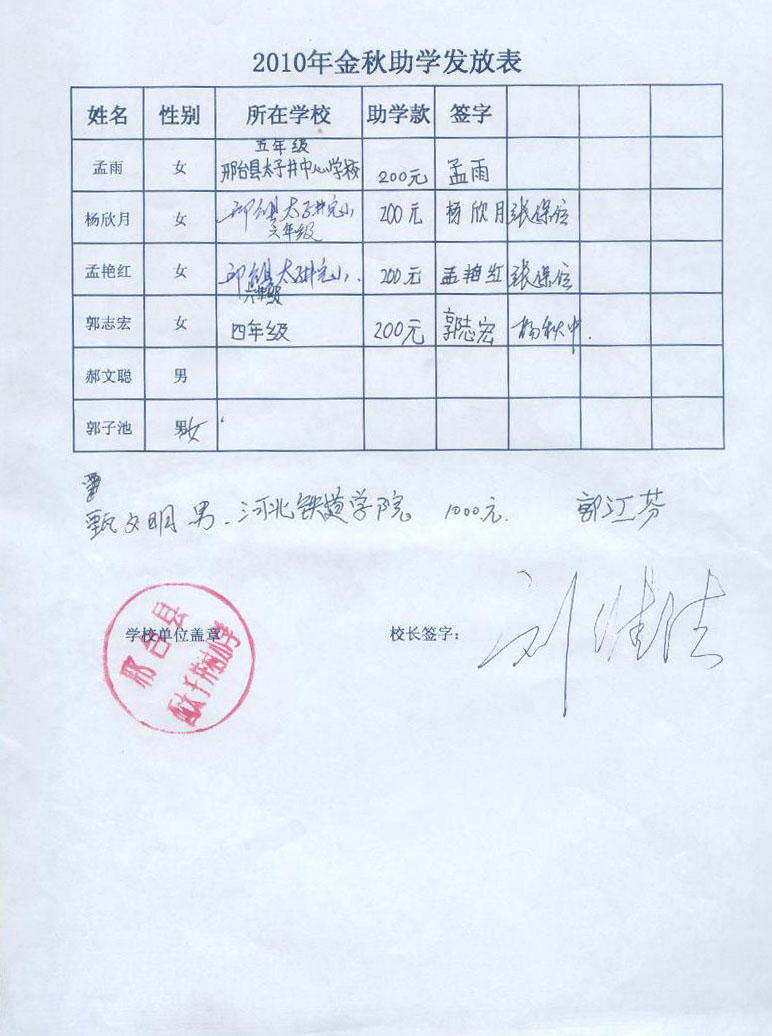 2010年金秋助学发放表
姓名 性别 所在学校 助学款 签字
孟雨 女 五年级
邢台县太子井中心学校 200元 孟雨
杨欣月 女 邢台县太子井完小
六年级 200元 杨欣月 张保信
孟艳红 女 邢台县太子井完小.
六年级 200元 孟艳红 张保信
郭志宏 女 四年级 200元 郭志宏 杨秋中.
郝文聪 男
郭子池 男女
甄文明 男、河北铁道学院 1000元. 郭江芬
学校单位盖章
校长签字:
邢台县